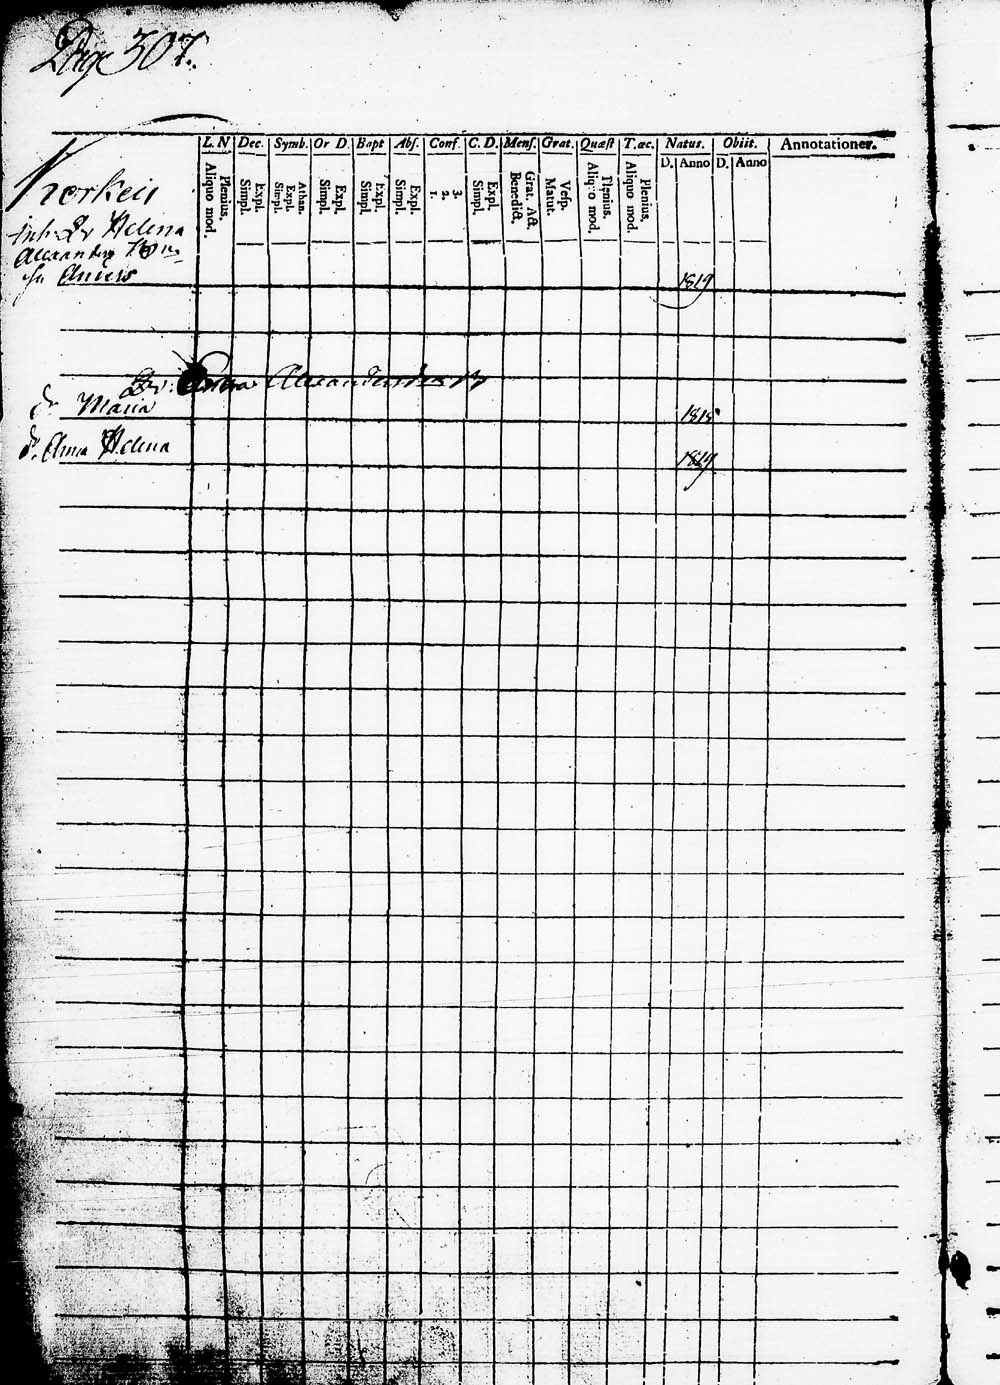 Pag 307.
L. N Dec. Symb. Or D. Bapt Abs. Conf. C. D. Mens. Grat. Quæst T. œc. Natus. Obiit. Annotationer.
D. Anno D. Anno
Plenius. Aliquo mod.
Expl. Simpl.
Athan. Expl. Simpl.
Expl. Simpl.
Expl. Simpl.
Expl. Simpl.
3. 2. 1.
Expl. Simpl.
Grat. Act. Benedict.
Vesp. Matut.
Plenius. Aliquo mod.
Plenius. Aliquo mod.
Korkeis
Inh. Helena
1819
Alexandersdr
Maria 1815
Anna Helena 1819